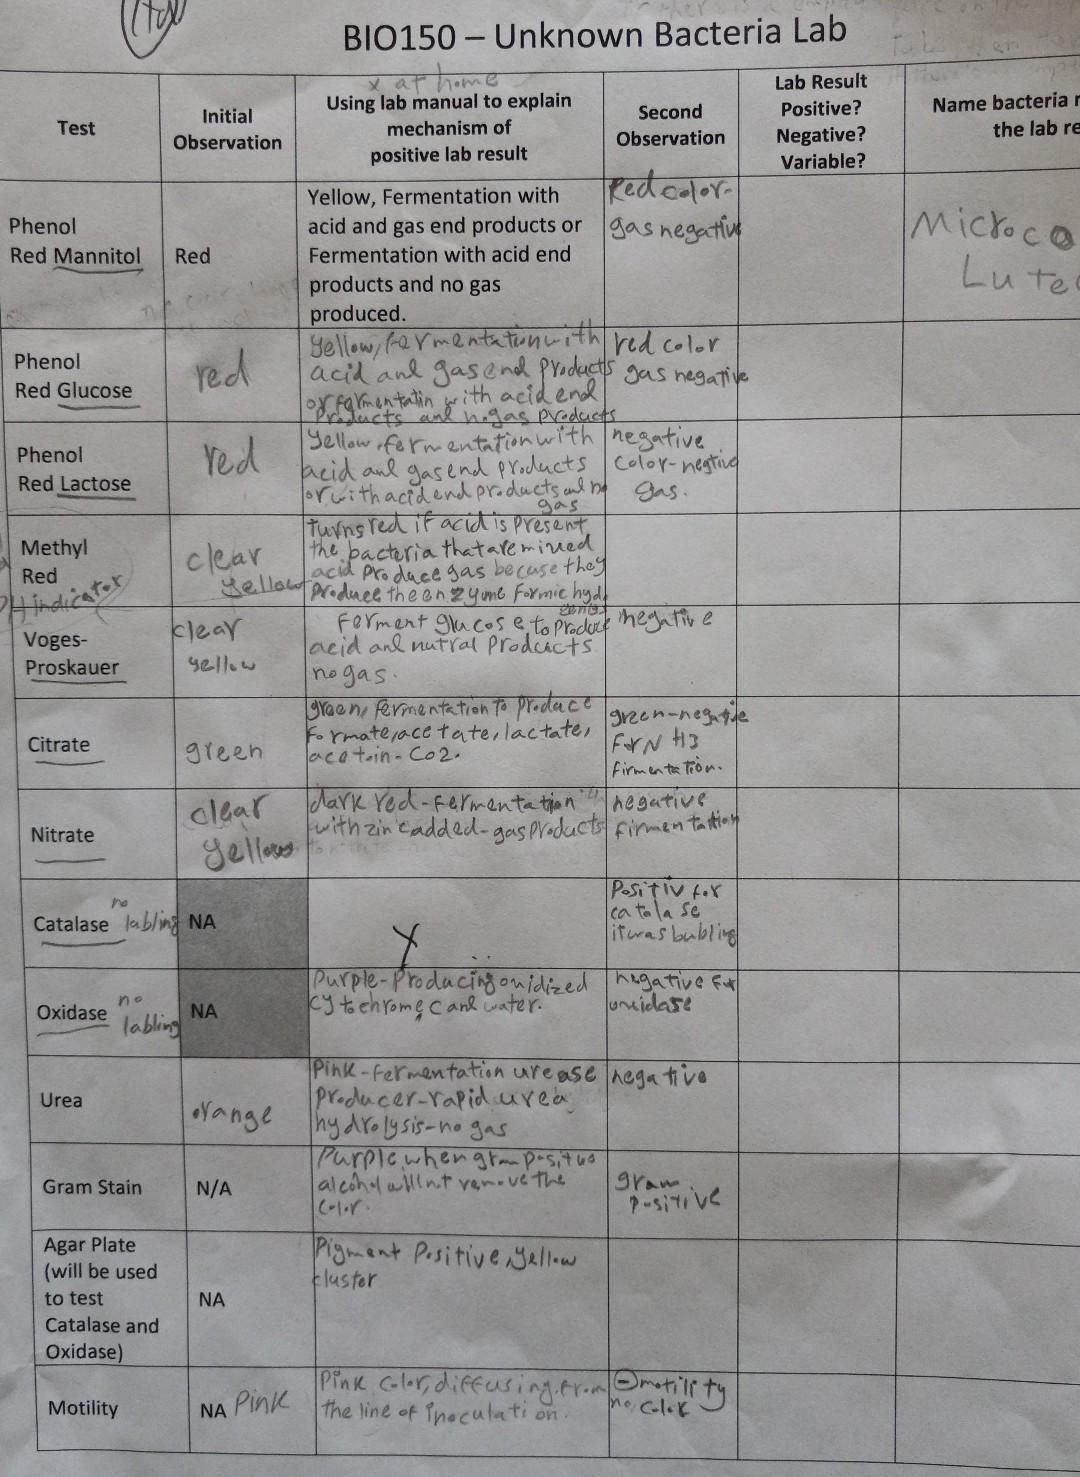 BIO150 – Unknown Bacteria Lab
x at home
Test
Initial
Observation
Using lab manual to explain
mechanism of
positive lab result
Second
Observation
Lab Result
Positive?
Negative?
Variable?
Name bacteria
the lab re
Phenol
Red Mannitol
Red
Yellow, Fermentation with
acid and gas end products or
Fermentation with acid end
products and no gas
produced.
Red color-
gas negative
Microco
Lute
Phenol
Red Glucose
red
Yellow, fermentation with
acid and gas end products
or fermentatin with acid end
products and no gas products
red color
gas negative
Phenol
Red Lactose
red
Yellow, fermentation with
acid and gas end products
or with acid end products and no
gas
negative
color-negtive
gas.
Methyl
Red
PH indicator
clear
yellow
turns red if acid is present
the bacteria that are mixed
acid produce gas becuse they
produce the enzyme formic hyd
Voges-
Proskauer
clear
yellow
Ferment glucose to produce
acid and nutral products
no gas.
negative
Citrate
green
green, fermentation to produce
formate, acetate, lactate,
acetoin- CO2.
green-negative
for NH3
firmentation.
Nitrate
clear
yellow
dark red-fermentation
with zinc added-gas products
negative
firmentation
Catalase no
labling
NA
X
Positiv for
catalase
it was bubling
Oxidase no
labling
NA
Purple-Producing oxidized
cytochrome c and water.
negative for
oxidase
Urea
orange
Pink-fermentation urease
producer-rapid urea
hydrolysis-no gas
negative
Gram Stain
N/A
Purple, when gram positive
alcohol will not remove the
color.
gram
positive
Agar Plate
(will be used
to test
Catalase and
Oxidase)
NA
Pigment Positive, yellow
cluster
Motility
NA Pink
Pink color, diffusing from
the line of inoculation.
motility
no color